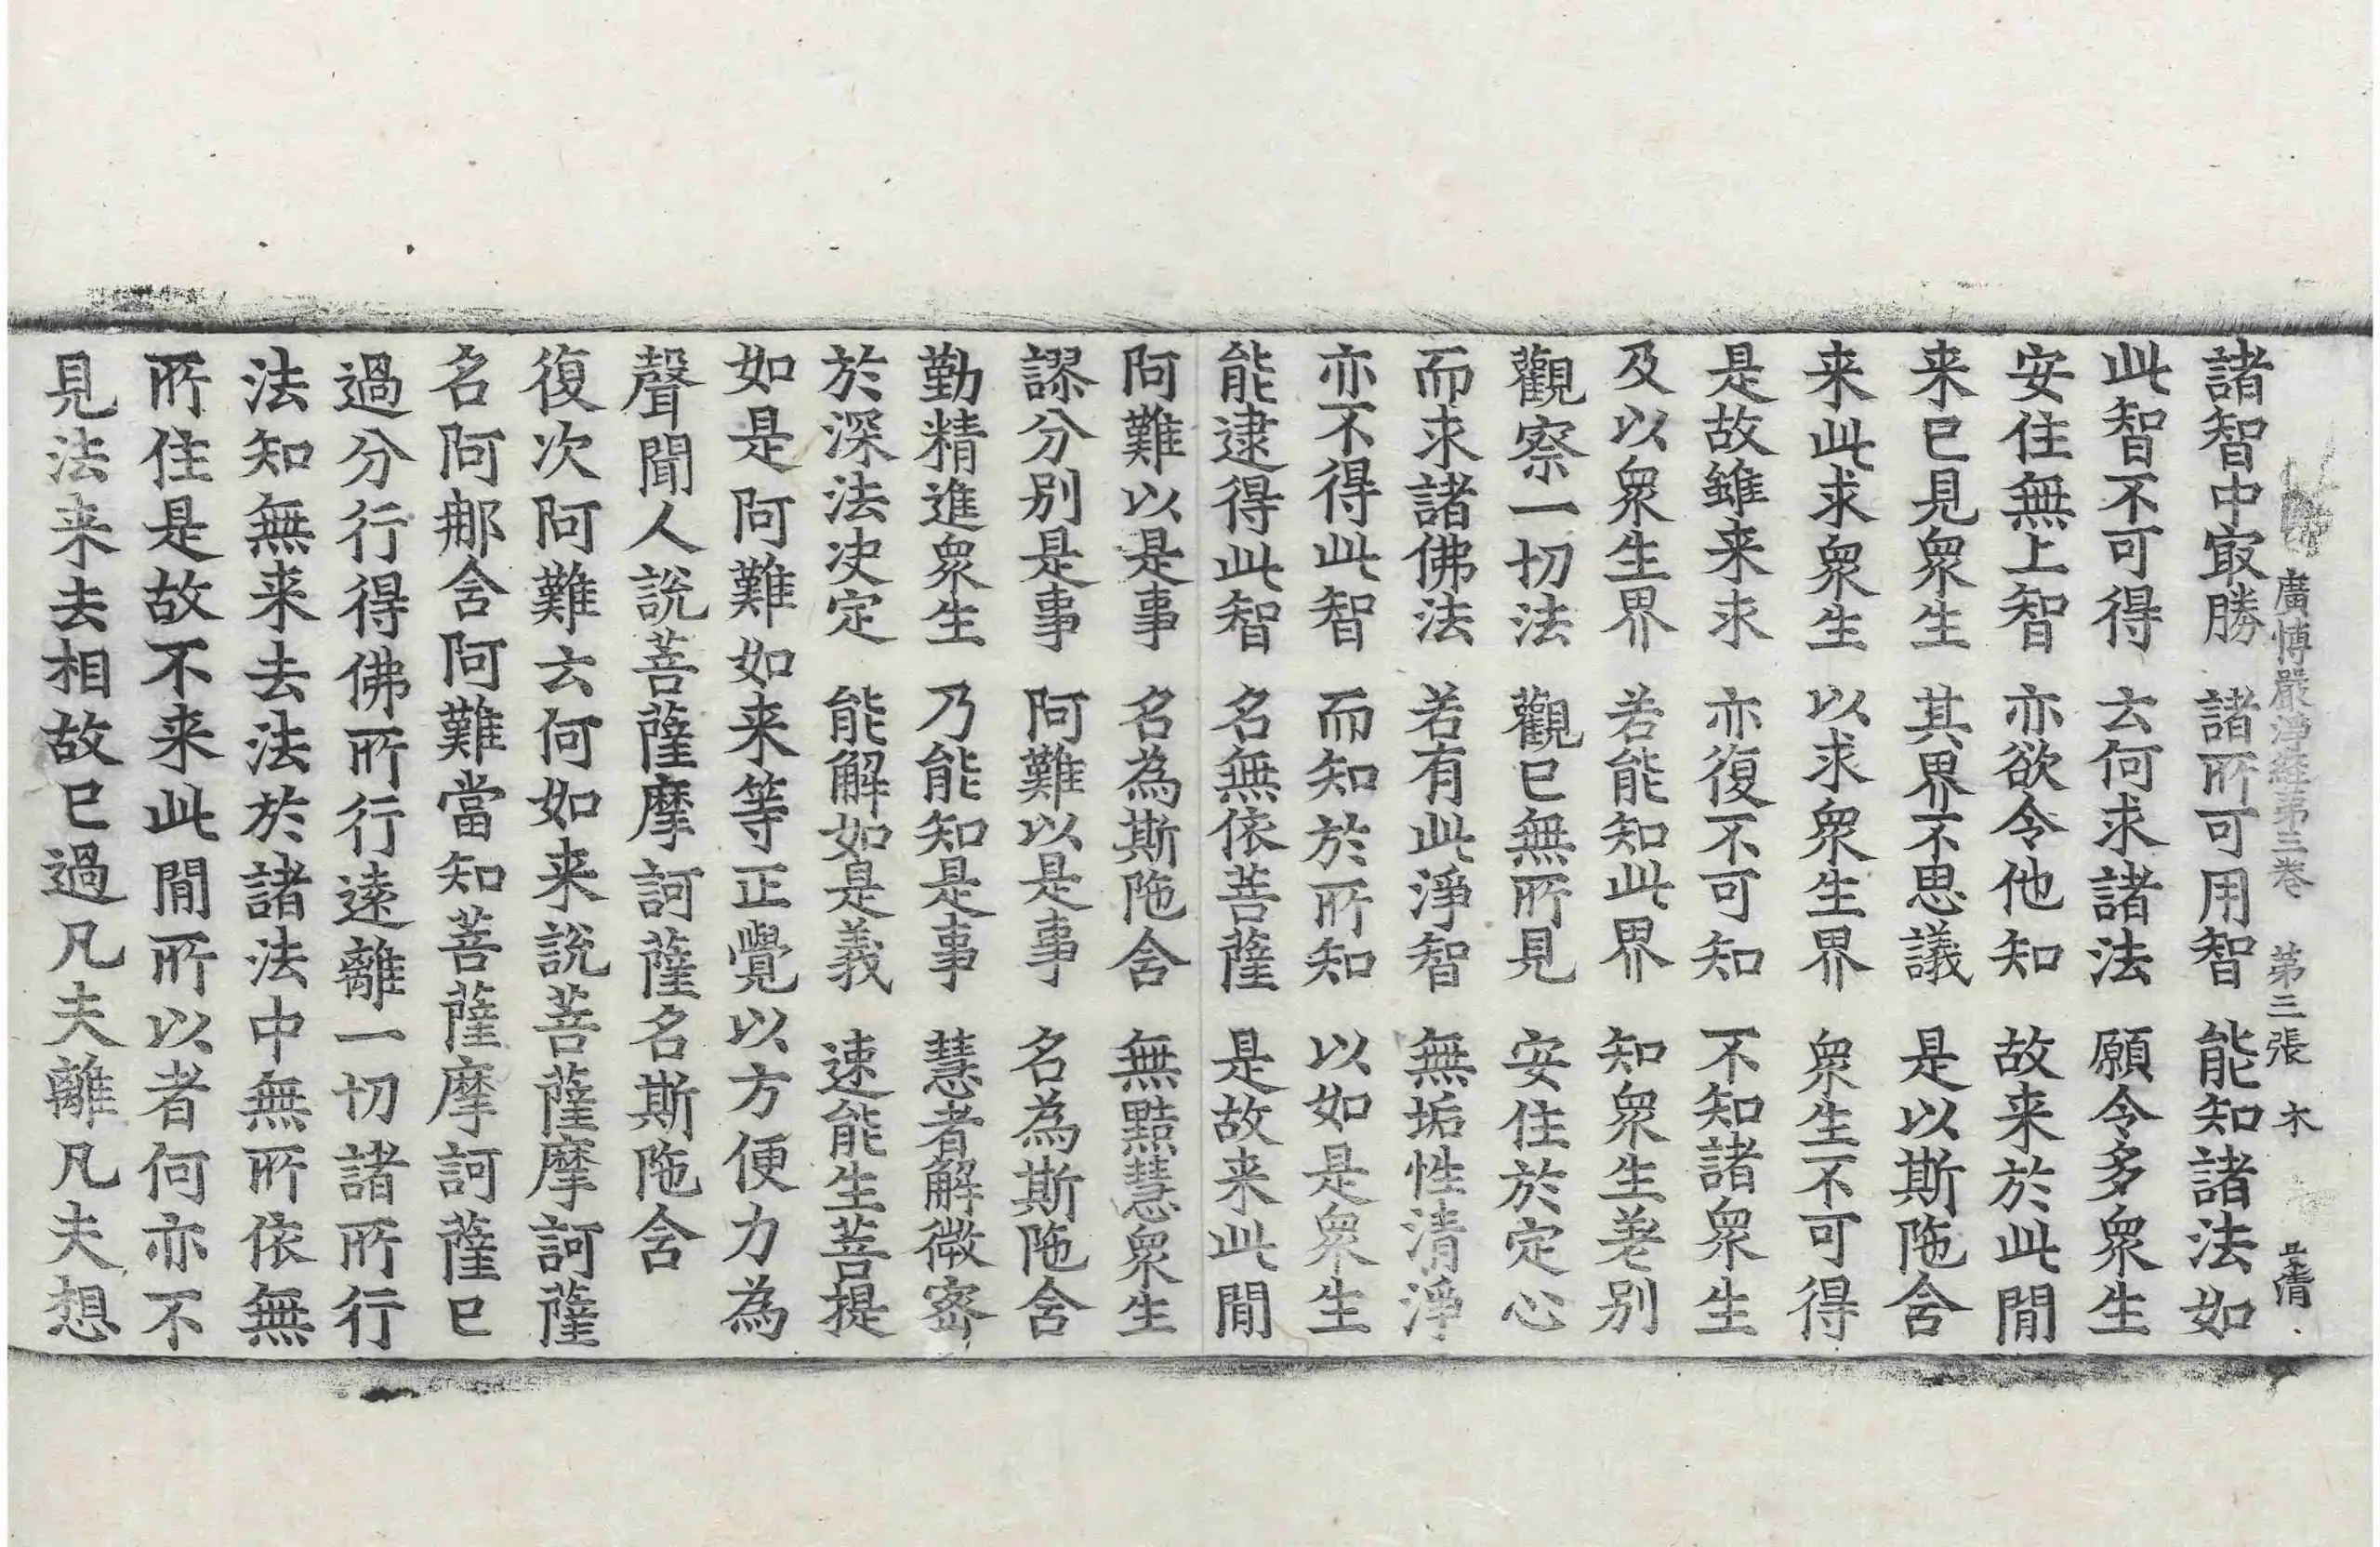 廣博嚴淨經第三卷 第三張 木 孟清
諸智中㝡勝 諸所可用智 能知諸法如
此智不可得 云何求諸法 願令多衆生
安住無上智 亦欲令他知 故来於此閒
来已見衆生 其界不思議 是以斯陁舍
来此求衆生 以求衆生界 衆生不可得
是故雖来求 亦復不可知 不知諸衆生
及以衆生界 若能知此界 知衆生差别
觀察一切法 觀已無所見 安住於定心
而求諸佛法 若有此淨智 無垢性清淨
亦不得此智 而知於所知 以如是衆生
能逮得此智 名無依菩薩 是故来此閒
阿難以是事 名為斯陁舍 無黠慧衆生
謬分别是事 阿難以是事 名為斯陁舍
勤精進衆生 乃能知是事 慧者解微密
於深法决定 能解如是義 速能生菩提
如是阿難如来等正覺以方便力為
聲聞人說菩薩摩訶薩名斯陁舍
復次阿難云何如来說菩薩摩訶薩
名阿那舍阿難當知菩薩摩訶薩已
過分行得佛所行遠離一切諸所行
法知無来去法於諸法中無所依無
所住是故不来此閒所以者何亦不
見法来去相故已過凡夫離凡夫想